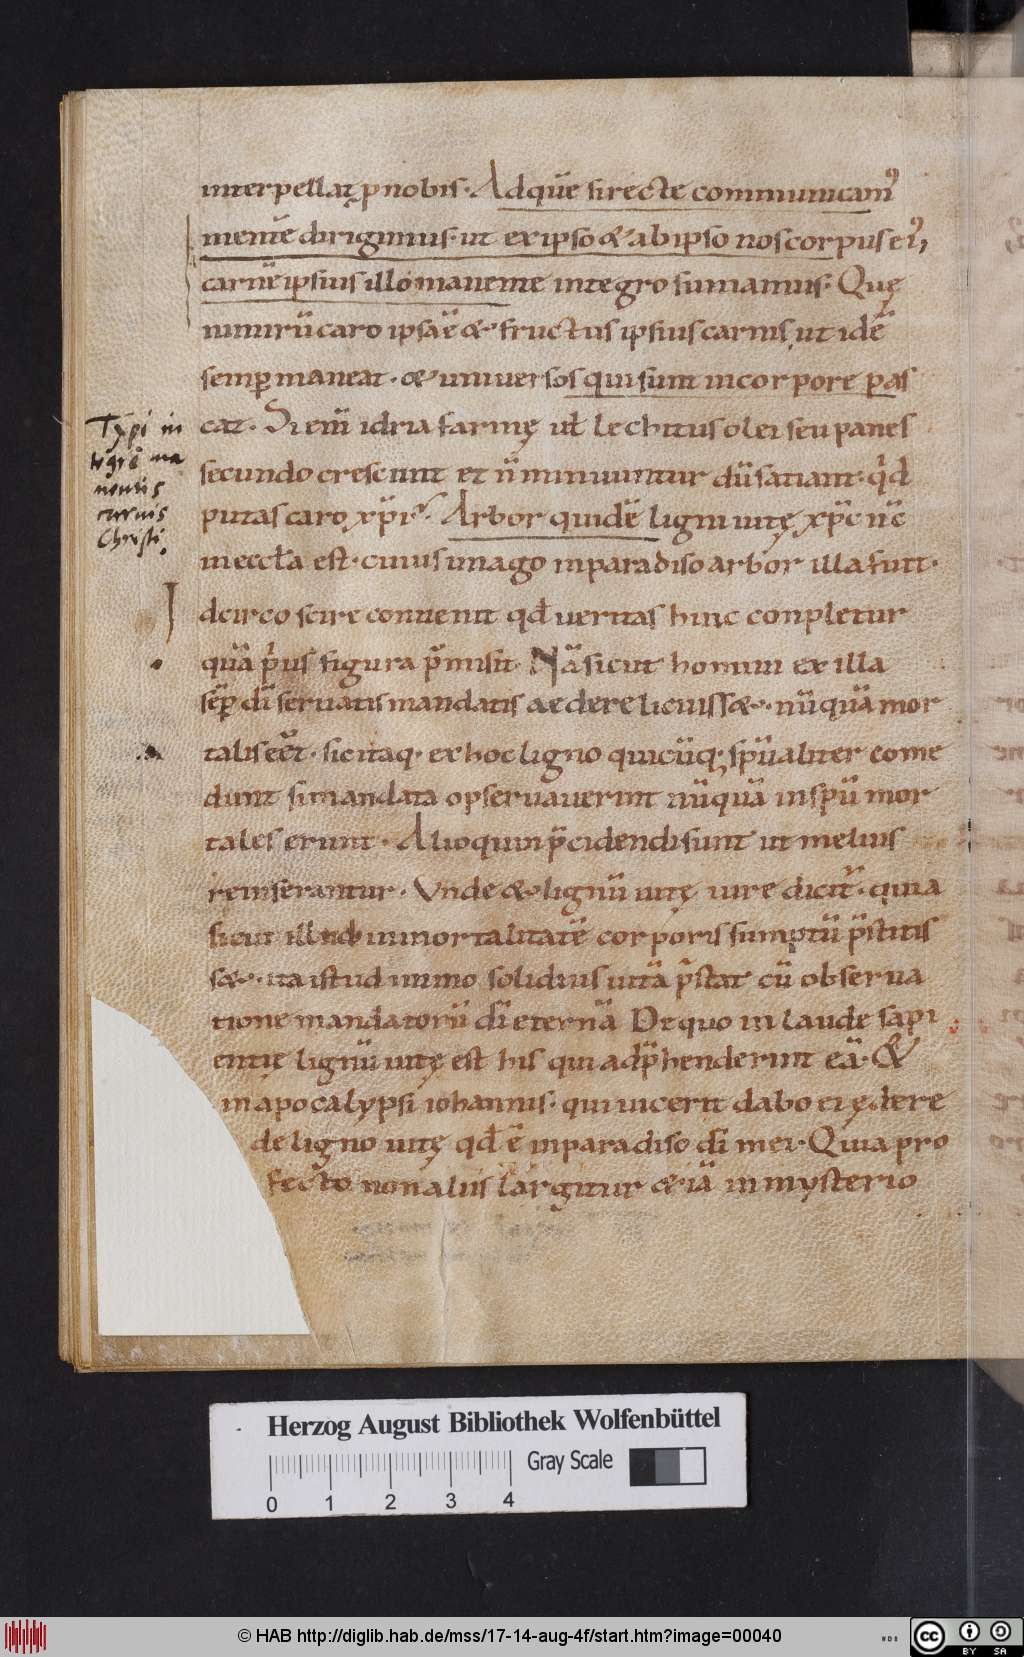 interpellat̨ p nobis· Adquē si recte communicam᷒
mentē dirigimus· ut ex ipso & ab ipso nos corpus ei᷒,
carnē ipsius illo manente integro sumamus· Quę
nimirū caro ipsa ē & fructus ipsius carnis, ut idē
semꝑ maneat· & universos qui sunt in corpore pas
cat· Si eni̅ idria farinę ul̵ lechitus olei seu panes
secundo crescunt et n̄ minuuntur dū satiant· qͥd
putas caro xp̄i· Arbor quidē ligni uitę xp̄c nc̄
in eccl̵a est· cuius imago in paradiso arbor illa fuit·
Idcirco scire conuenit qđ ueritas hinc conpletur
quā pͥus figura p̄misit· Nā sicut homini ex illa
sēꝑ di̅ seruatis mandatis aedere licuiss&· nūquā mor
talis eēt· sic itaq· ex hoc ligno quicūq; spūaliter come
dunt si mandata opseruauerint nūquā in spū mor
tales erunt· Alioquin p̄cidendi sunt ut melius
reinserantur· Vnde & lignū uitę iure dicit᷑· quia
sicut illud inmortalitatē corporis sumptū p̄stitis
s&· ita istud immo solidius uitā p̄stat cū obserua
tione mandatorū di̅ eternā De quo in laude sapi
entię lignū uitę est his qui adp̄henderint eā· &
in apocalypsi iohannis· qui uicerit dabo ei ędere
de ligno uitę qđ ē in paradiso di̅ mei· Quia pro
fecto non aliis largitur & iā in mysterio
Typi in
tegrę ma
nentis
carnis
Christi.
Herzog August Bibliothek Wolfenbüttel
Gray Scale
0 1 2 3 4
© HAB http://diglib.hab.de/mss/17-14-aug-4f/start.htm?image=00040
WDB
cc BY SA